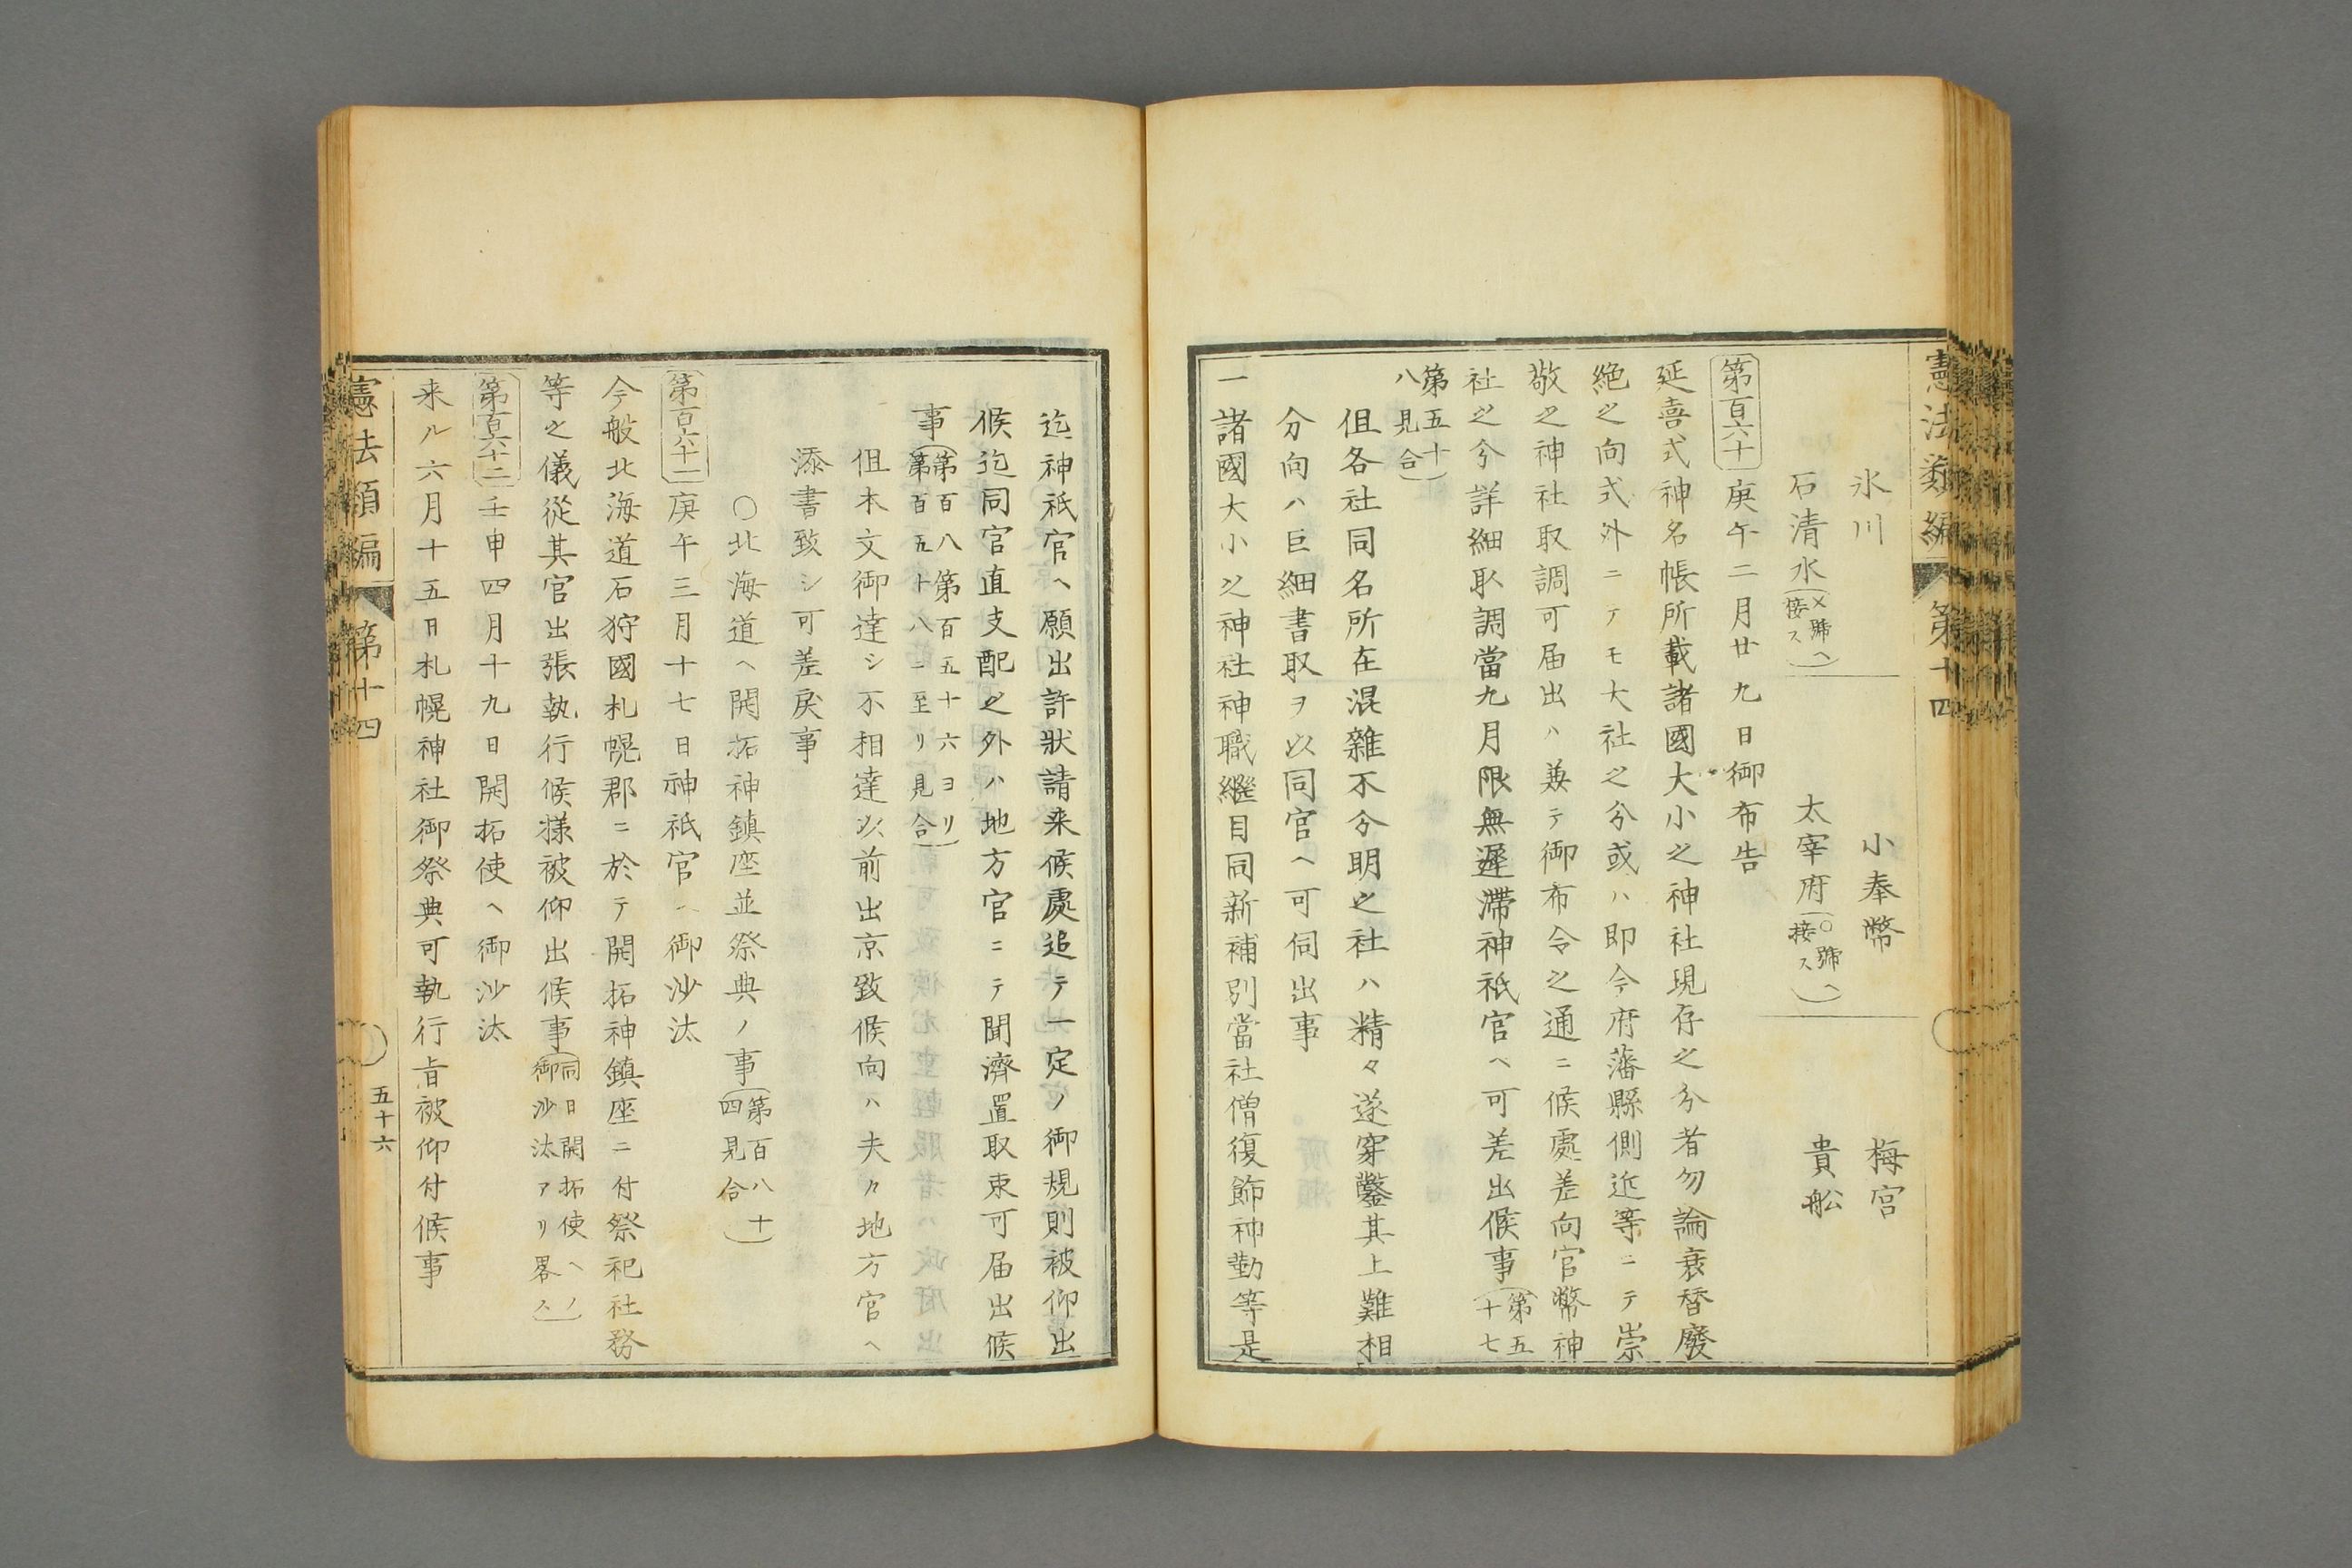 憲法類編　第十四
氷川　小奉幣　梅宮
石清水（×號ヘ接ス）　太宰府（○號ヘ接ス）　貴舩
第百六十　庚午二月廿九日御布告
延喜式神名帳所載諸國大小之神社現存之分者勿論衰替廢
絶之向式外ニテモ大社之分或ハ即今府藩縣側近等ニテ崇
敬之神社取調可届出ハ兼テ御布令之通ニ候處差向官幣神
社之分詳細取調當九月限無遲滯神祇官ヘ可差出候事（第五十七
第五十八見合）
但各社同名所在混雜不分明之社ハ精々遂穿鑿其上難相
分向ハ巨細書取ヲ以同官ヘ可伺出事
一諸國大小之神社神職繼目同新補別當社僧復飾神勤等是
迄神祇官ヘ願出許狀請来候處追テ一定ノ御規則被仰出
候迄同官直支配之外ハ地方官ニテ聞濟置取束可届出候
事（第百八第百五十六ヨリ第百五十八ニ至リ見合）
但本文御達シ不相達以前出京致候向ハ夫々地方官ヘ
添書致シ可差戻事
○北海道ヘ開拓神鎮座並祭典ノ事（第百八十四見合）
第百六十一　庚午三月十七日神祇官ヘ御沙汰
今般北海道石狩國札幌郡ニ於テ開拓神鎮座ニ付祭祀社務
等之儀從其官出張執行候様被仰出候事（同日開拓使ヘノ御沙汰アリ畧ス）
第百六十二　壬申四月十九日開拓使ヘ御沙汰
来ル六月十五日札幌神社御祭典可執行旨被仰付候事
憲法類編　第十四　五十六